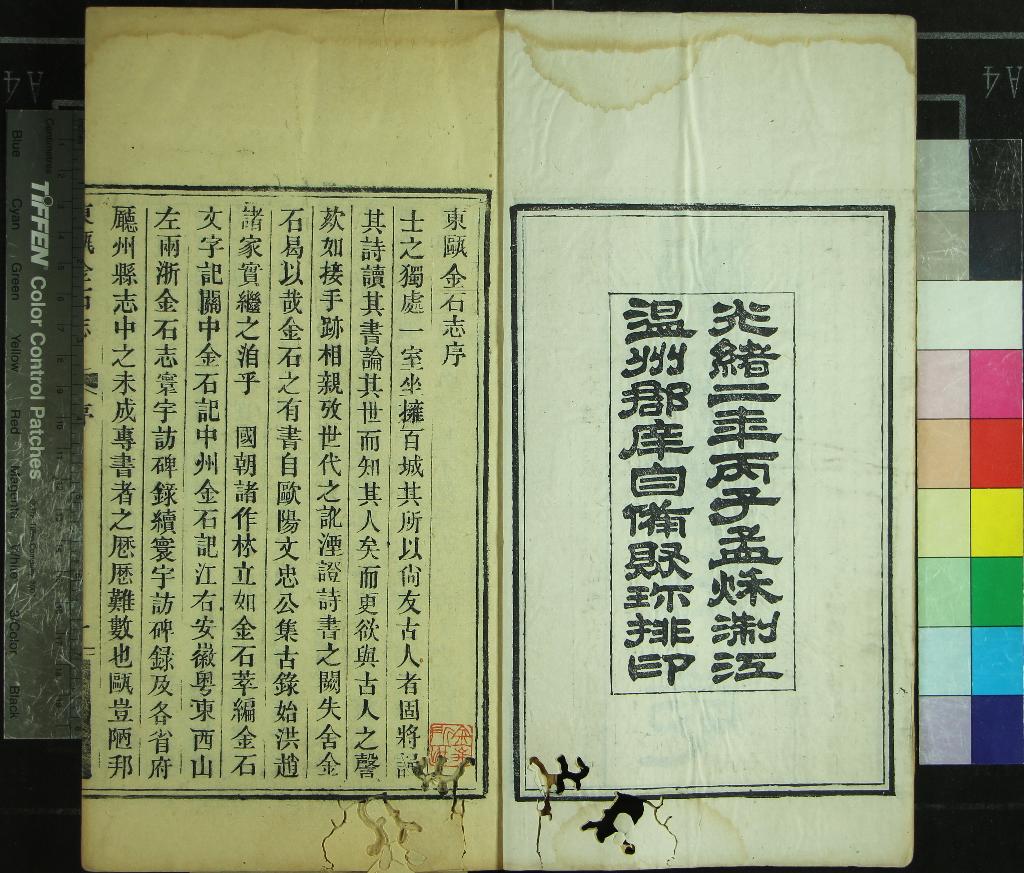 光緒二年丙子孟秌淛江
温州郡庠自備聚珍排印
東甌金石志序
士之獨處一室坐擁百城其所以尙友古人者固將誦
其詩讀其書論其世而知其人矣而更欲與古人之謦
欬如接手跡相親攷世代之訛湮證詩書之闕失舍金
石曷以哉金石之有書自歐陽文忠公集古錄始洪趙
諸家實繼之洎乎　國朝諸作林立如金石萃編金石
文字記關中金石記中州金石記江右安徽粤東西山
左兩浙金石志寰宇訪碑錄續寰宇訪碑録及各省府
廳州縣志中之未成專書者之厯厯難數也甌豈陋邦
東甌金石志
序
一
TIFFEN Color Control Patches
Centimetres
Blue
Cyan
Green
Yellow
Red
Magenta
White
3/Color
Black
A4
A4